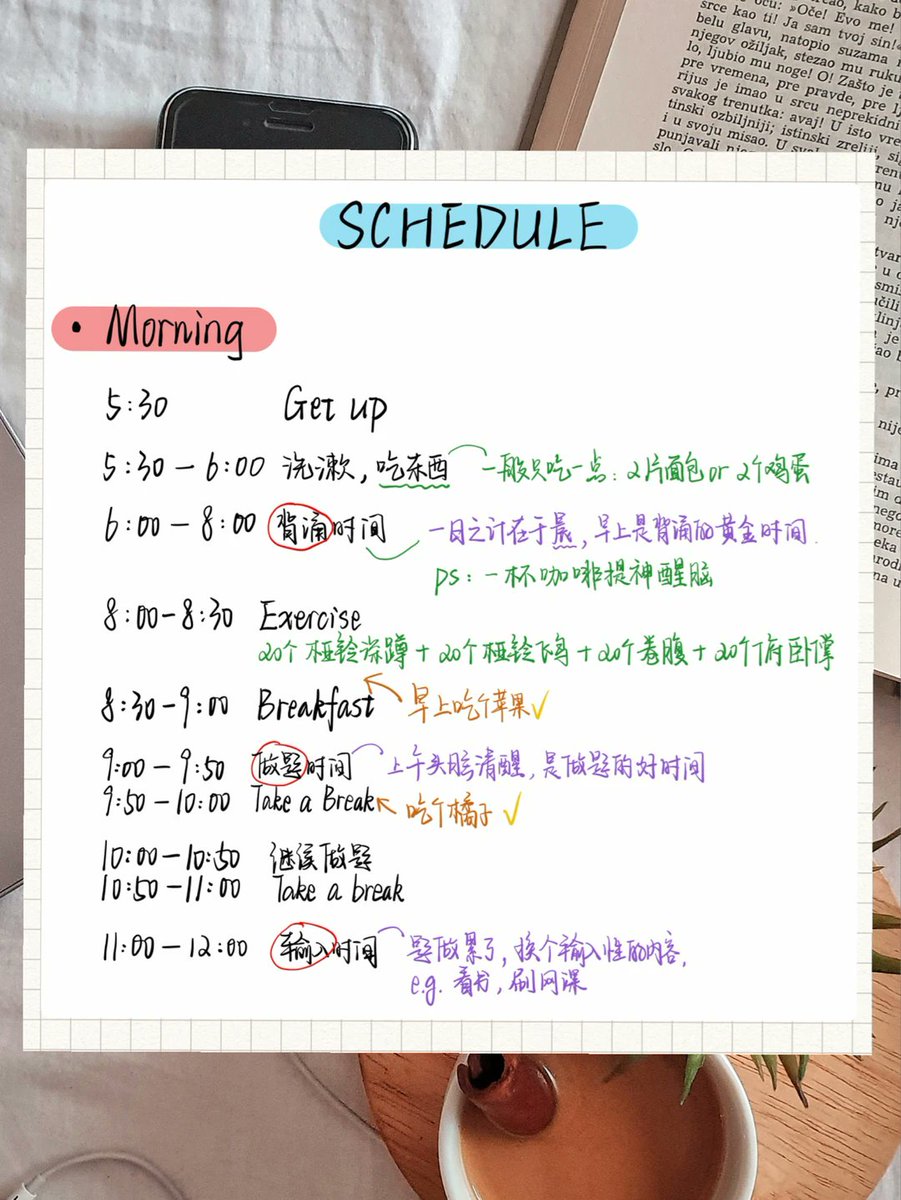 srce kao ti! Ja sam tvoj sin!«
belu glavu, natopio suzama n
njegov ožiljak, stezao mu ruku
ti, ljubio mu noge! O! Zašto je
pre vremena, pre pravde, pre
rijus je imao u srcu neprekidni
svakog trenutka: avaj! U isto vre
tinski ozbiljniji; istinski zreliji, si
i u svoju misao. U
SCHEDULE
• Morning
5:30 Get up
5:30 — 6:00 洗漱,吃东西 一般只吃一点:2片面包 or 2个鸡蛋
6:00 — 8:00 背诵时间 一日之计在于晨,早上是背诵的黄金时间.
ps:一杯咖啡提神醒脑
8:00-8:30 Exercise
20个哑铃深蹲+20个哑铃飞鸟+20个卷腹+20个俯卧撑
8:30-9:00 Breakfast 早上吃个苹果✓
9:00 — 9:50 做题时间 上午头脑清醒,是做题的好时间
9:50 — 10:00 Take a Break 吃个橘子 ✓
10:00 — 10:50 继续做题
10:50 — 11:00 Take a break
11:00 — 12:00 输入时间 题做累了,换个输入性的内容,
e.g. 看书,刷网课